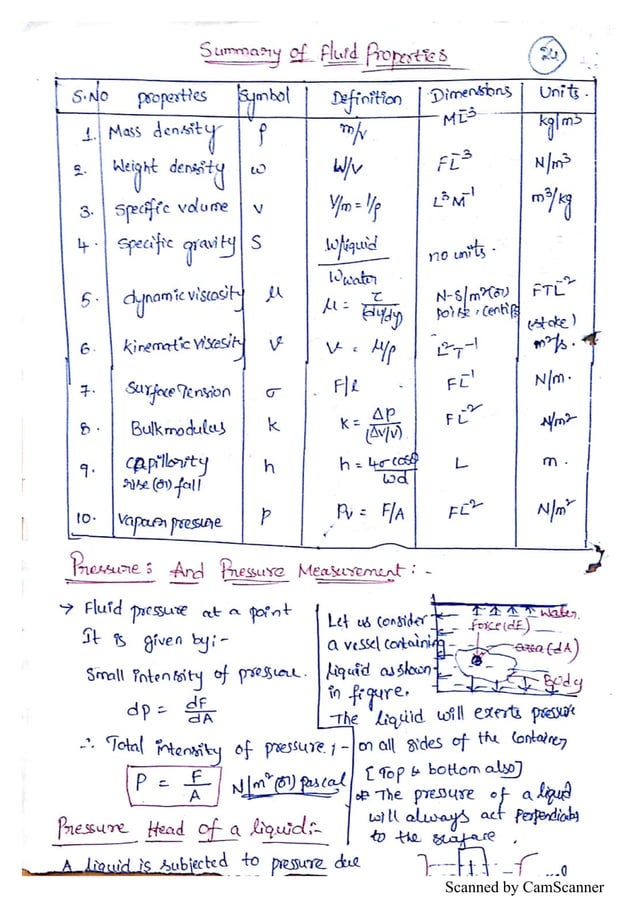 Summary of Fluid Properties
24
S.No properties Symbol Definition Dimensions Units.
1. Mass density ρ m/v ML⁻³ kg/m³
2. Weight density ω W/v FL⁻³ N/m³
3. Specific volume v V/m = 1/ρ L³M⁻¹ m³/kg
4. Specific gravity S W liquid / W water no units.
5. dynamic viscosity μ μ = τ/(du/dy) N-S/m² (or) poise, FTL⁻²
6. kinematic viscosity ν ν = μ/ρ L²T⁻¹ (stoke) m²/s.
7. Surface Tension σ F/l FL⁻¹ N/m.
8. Bulk modulus K K = Δp/(Δv/v) FL⁻² N/m²
9. Capillority rise (or) fall h h = 4σ cosθ/wd L m.
10. Vapour pressure P Pv = F/A FL⁻² N/m²
Pressure: And Pressure Measurement:-
→ Fluid pressure at a point
It is given by:-
Small intensity of pressure.
dp = dF/dA
∴ Total intensity of pressure:-
P = F/A N/m² (or) pascal
Pressure Head of a liquid:-
A liquid is subjected to pressure due
Let us consider
a vessel containing
liquid as shown
in figure.
The liquid will exerts pressure
on all sides of the container
[Top & bottom also]
* The pressure of a liquid
will always act
to the surface.
Water
force (dF)
area (dA)
Body
Scanned by CamScanner